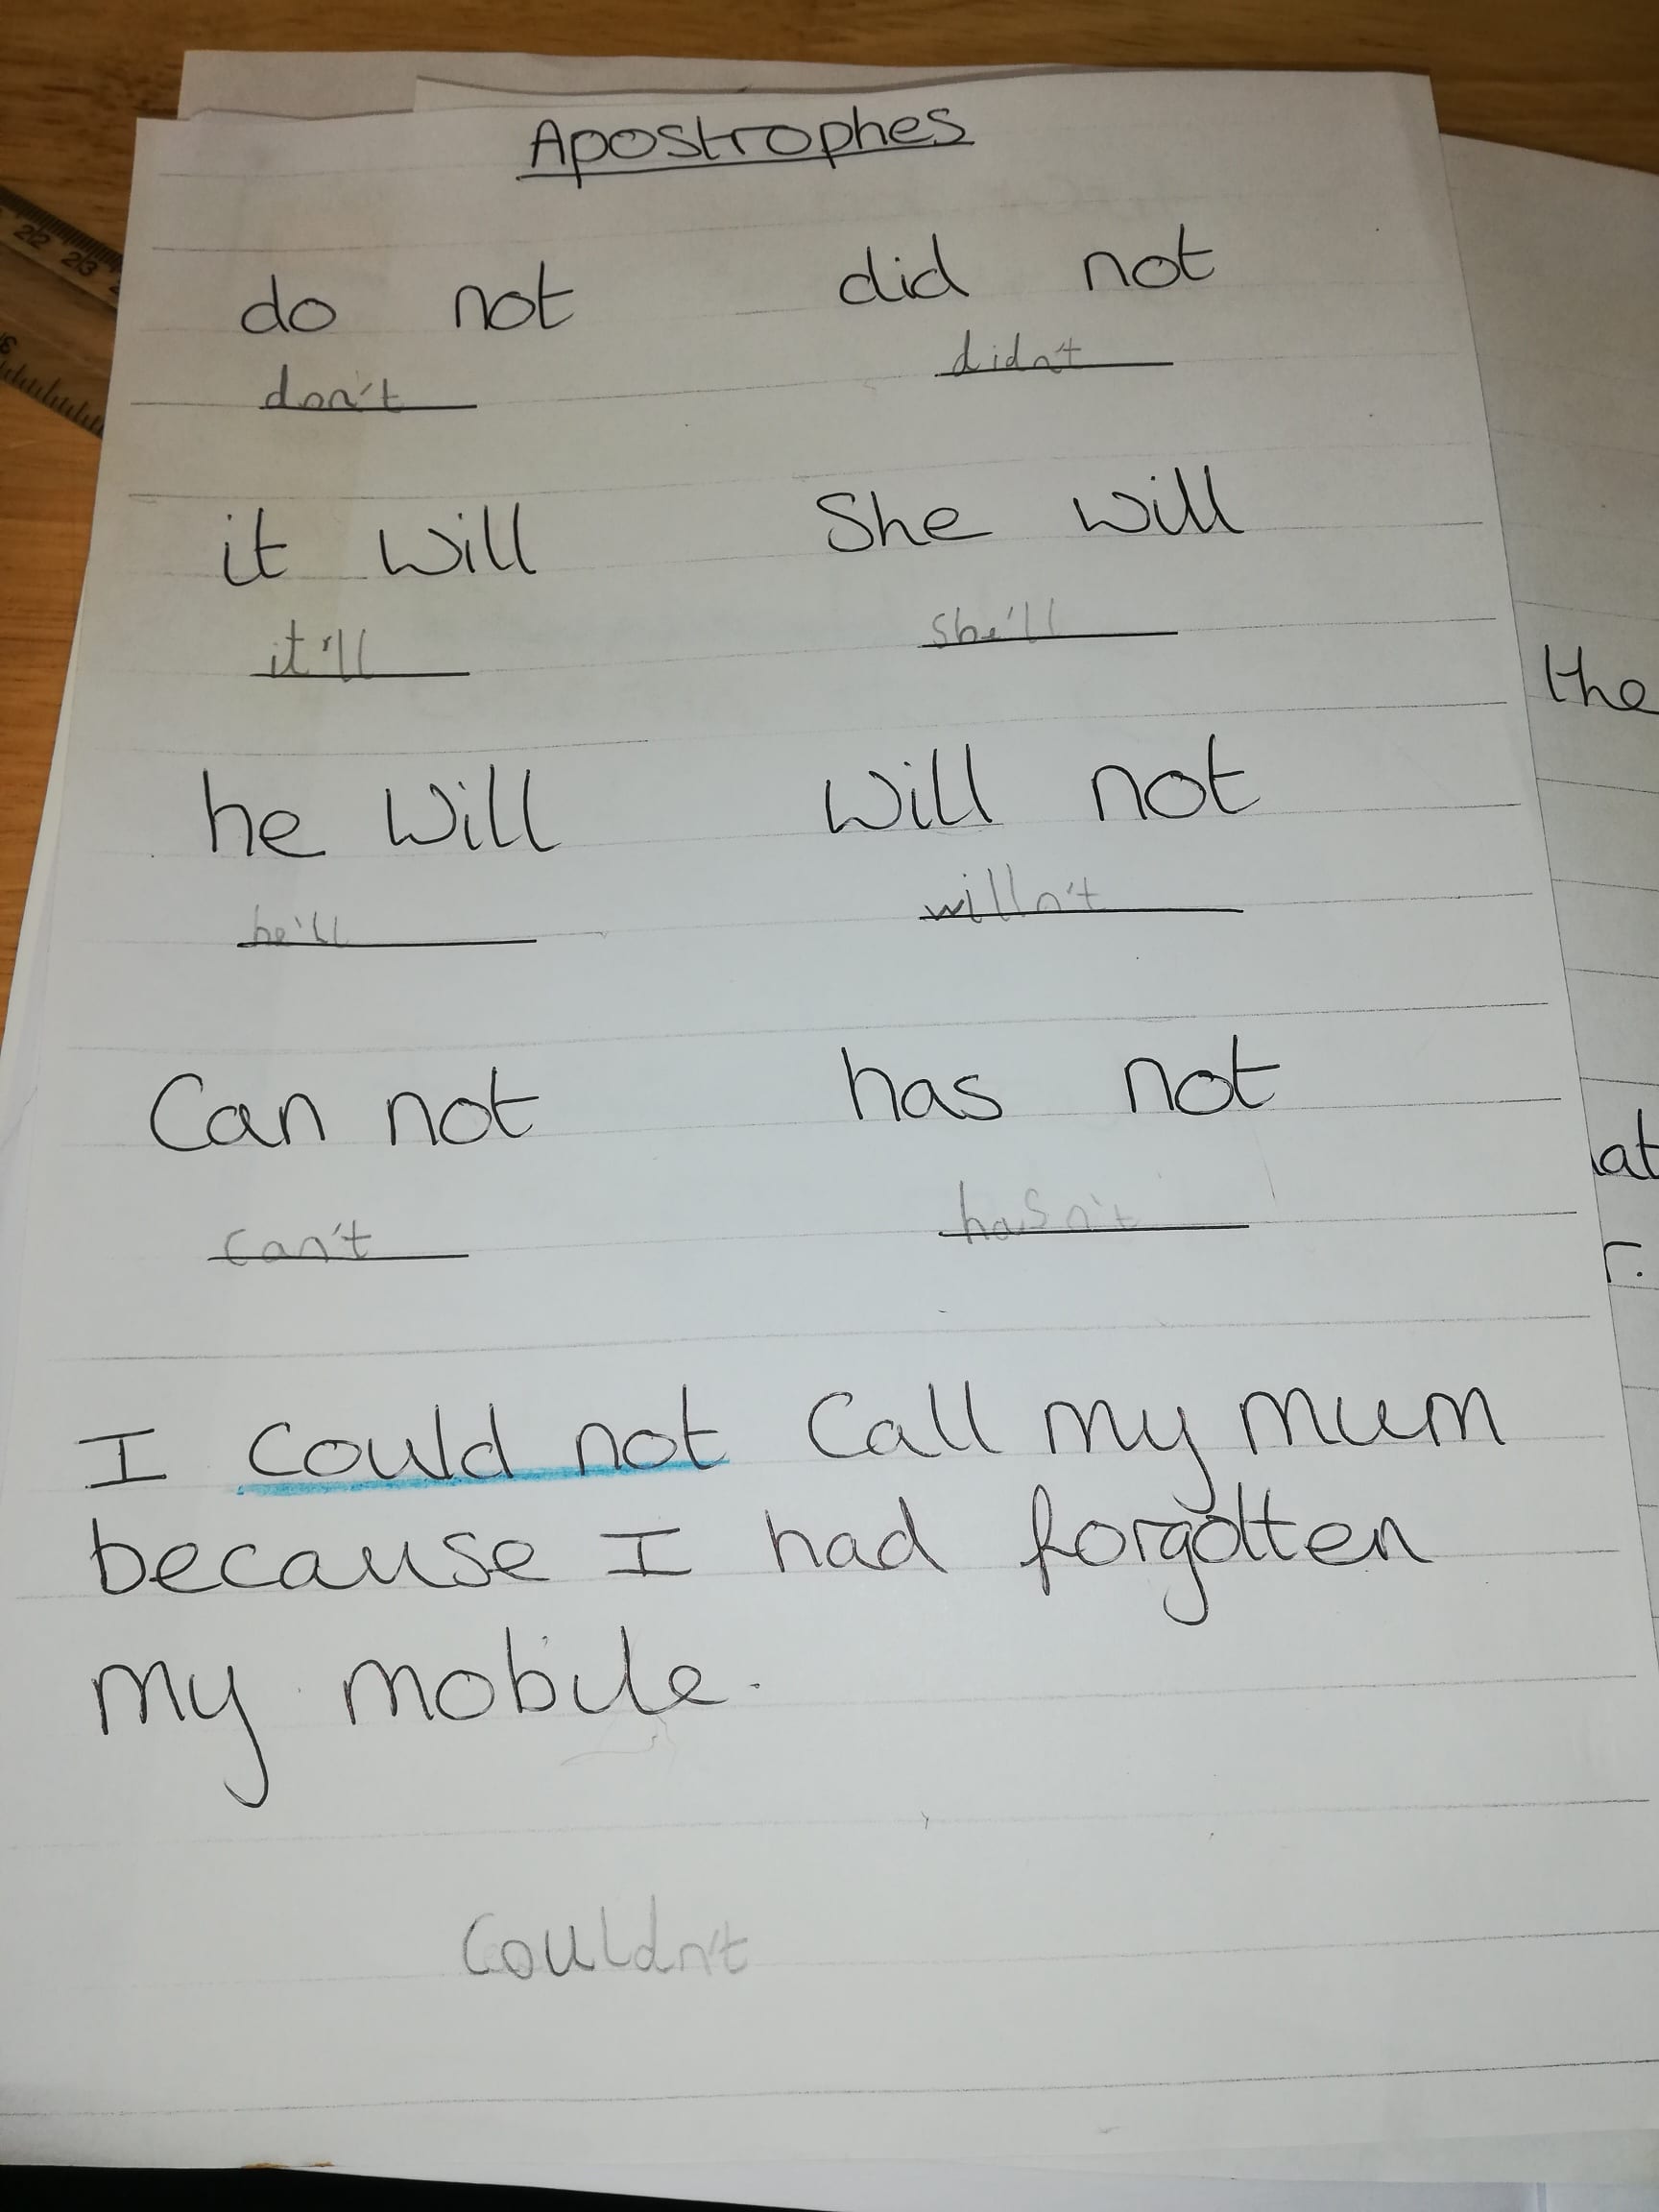 Apostrophes
do not did not
don't didn't
it will She will
it'll she'll
he will will not
he'll willn't
Can not has not
can't hasn't
I could not call my mum
because I had forgotten
my mobile.
Couldn't
the
at
r.
22 23